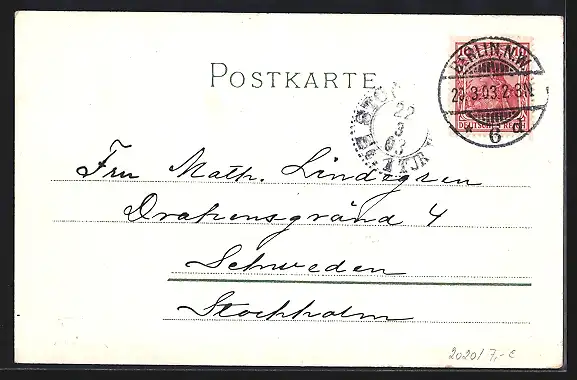 POSTKARTE
BERLIN N.W.
3.03.2-3N.
* 6 d
DEUTSCHES REICH
22
3
03
Fru Math. Lindgren
Drakensgränd 4
Schweden
Stockholm
2020/7,-€